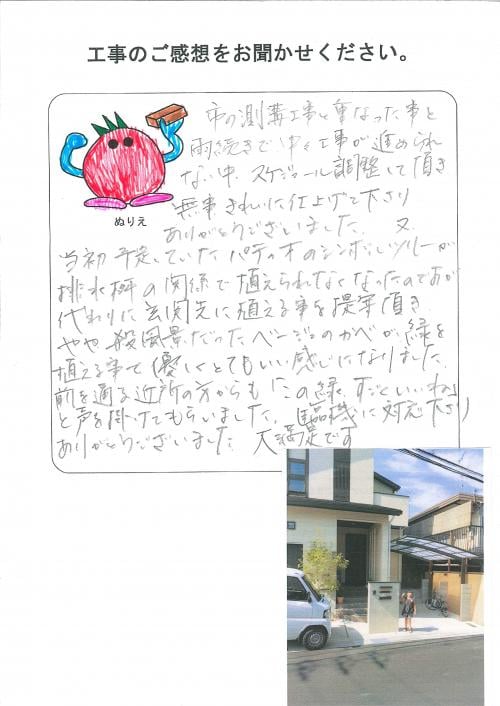 工事のご感想をお聞かせください。
ぬりえ
市の測溝工事と重なった事と
雨続きで中々工事が進められ
ない中、スケジュール調整して頂き
無事きれいに仕上げて下さり
ありがとうございました。又、
当初予定していたパティオのシンボルツリーが
排水桝の関係で植えられなくなったのですが
代わりに玄関先に植える事を提案頂き
やや殺風景だったベージュのかべが、緑を
植える事で優しくとてもいい感じになりました。
前を通る近所の方からも「この緑、すごくいいね」
と声を掛けてもらいました。臨機に対応下さり
ありがとうございました 大満足です